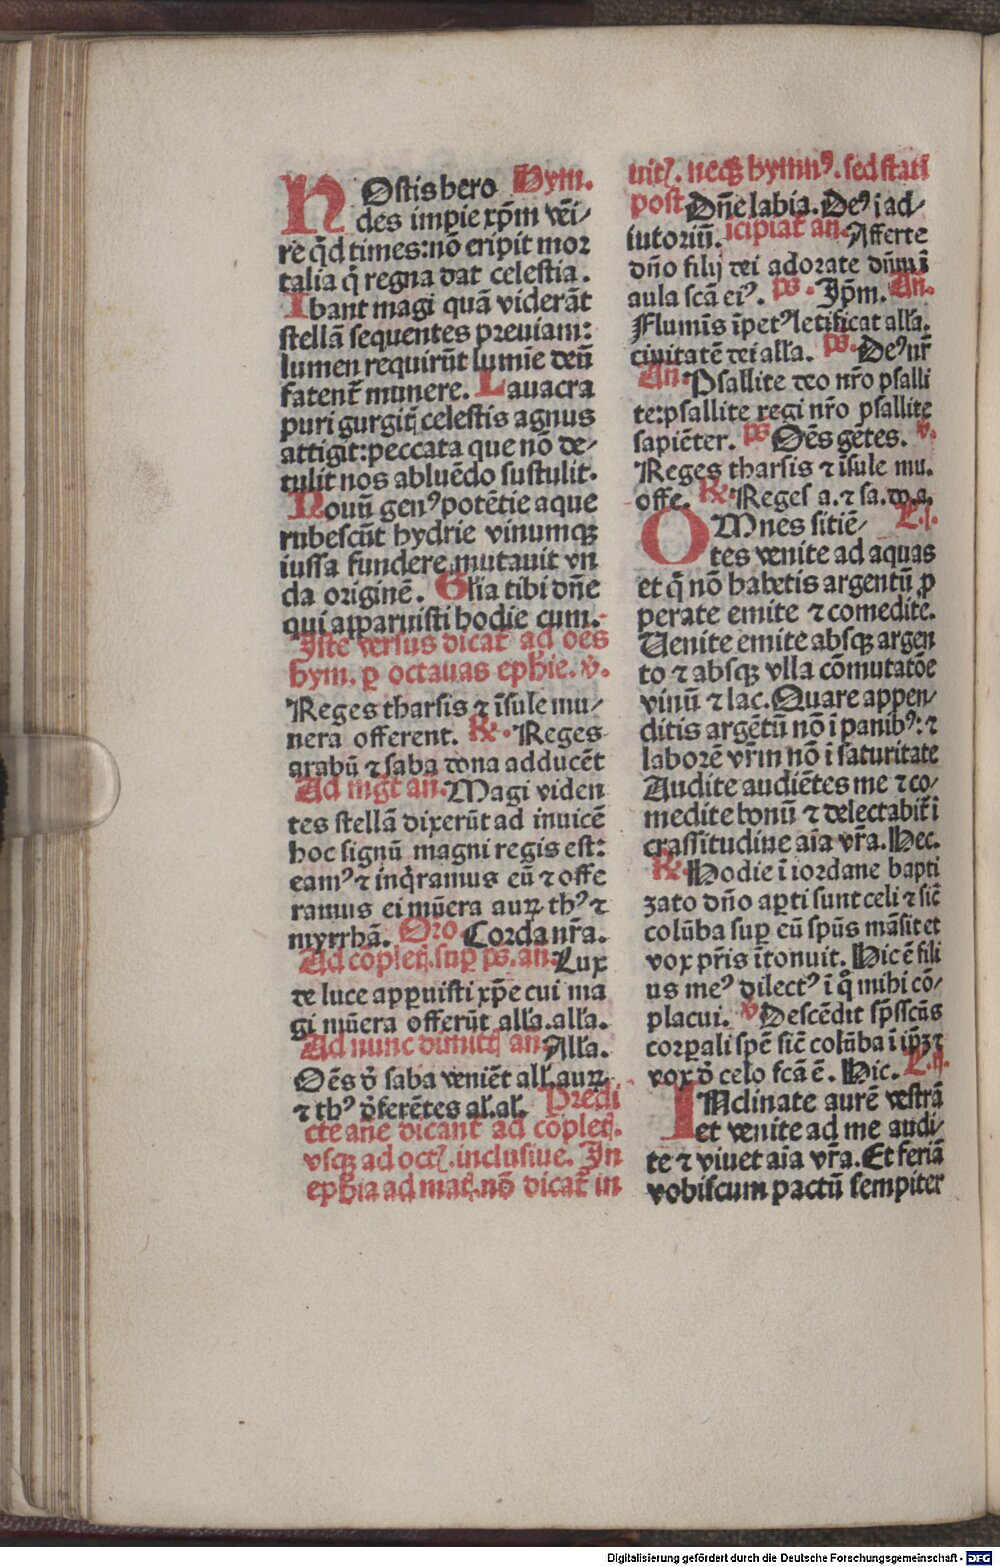 NOstis hero Hym.
des impie xp̄m vēi/
re qd̄ times: nō eripit mor
talia q̄ regna dat celestia.
Ibant magi quā viderāt
stellā sequentes preuiam:
lumen requirūt lumīe deū
fatent̄ munere. Lauacra
puri gurgit celestis agnus
attigit: peccata que nō de/
tulit nos abluēdo sustulit.
Nouū genꝰ potētie aque
rubescūt hydrie vinumqꝫ
iussa fundere mutauit vn
da originē. Gl̄ia tibi dn̄e
qui apparuisti hodie cum.
Iste versus dicat̄ ad oēs
hym. ꝑ octauas eph̄ie. v̄.
Reges tharsis ⁊ īsule mu/
nera offerent. ℟. Reges
arabū ⁊ saba dona adducēt
Ad mgt̄ an. Magi viden
tes stellā dixerūt ad inuicē
hoc signū magni regis est:
eamꝰ ⁊ inq̄ramus eū ⁊ offe
ramus ei mūera auꝝ thꝰ ⁊
myrrhā. Oro. Corda nr̄a.
Ad cōplet. sup̄ ps. an. Lux
de luce apꝑuisti xp̄e cui ma
gi mūera offerūt all'a. all'a.
Ad nunc dimitt an. All'a.
Oēs d̄ saba veniēt all. auꝝ
⁊ thꝰ d̄ferētes al. al. Predi
cte ane dicant̄ ad cōplet.
vsqꝫ ad oct. inclusiue. In
eph̄ia ad mat. nō dicat̄ in
uit. neqꝫ hymnꝰ. sed stati
post Dn̄e labia. Deꝰ i ad/
iutoriū. icipiat̄ an. Afferte
dn̄o filij dei adorate dn̄m ī
aula scā eiꝰ. ps. Ip̄m. An.
Flumīs īpetꝰ letificat all'a.
ciuitatē dei all'a. ps. Deꝰ nr̄
An. Psallite deo nr̄o psalli
te: psallite regi nr̄o psallite
sapiēter. ps Oēs gētes. v.
Reges tharsis ⁊ īsule mu.
offe. ℟. Reges a. ⁊ sa. do. a.
OMnes sitiē/ L. j.
tes venite ad aquas
et q̄ nō habetis argentū ꝓ
perate emite ⁊ comedite.
Uenite emite absqꝫ argen
to ⁊ absqꝫ vlla cōmutatōe
vinū ⁊ lac. Quare appen/
ditis argētū nō ī panibꝰ: ⁊
laborē vr̄m nō ī saturitate
Audite audiētes me ⁊ co/
medite bonū ⁊ delectabit̄ ī
crassitudine aīa vr̄a. Hec.
℟. Hodie ī iordane bapti
zato dn̄o aꝑti sunt celi ⁊ sic̄
colūba suꝑ eū sp̄us māsit et
vox pr̄is ītonuit. Hic ē fili
us meꝰ dilectꝰ ī qͦ mihi cō/
placui. v̄ Descēdit sp̄sscūs
corꝑali spē sic̄ colūba ī ip̄ꝫ ⁊
vox d̄ celo fcā ē. Hic. L. ij.
INclinate aurē vestrā
et venite ad me audi/
te ⁊ viuet aīa vr̄a. Et feriā
vobiscum pactū sempiter
Digitalisierung gefördert durch die Deutsche Forschungsgemeinschaft - DFG